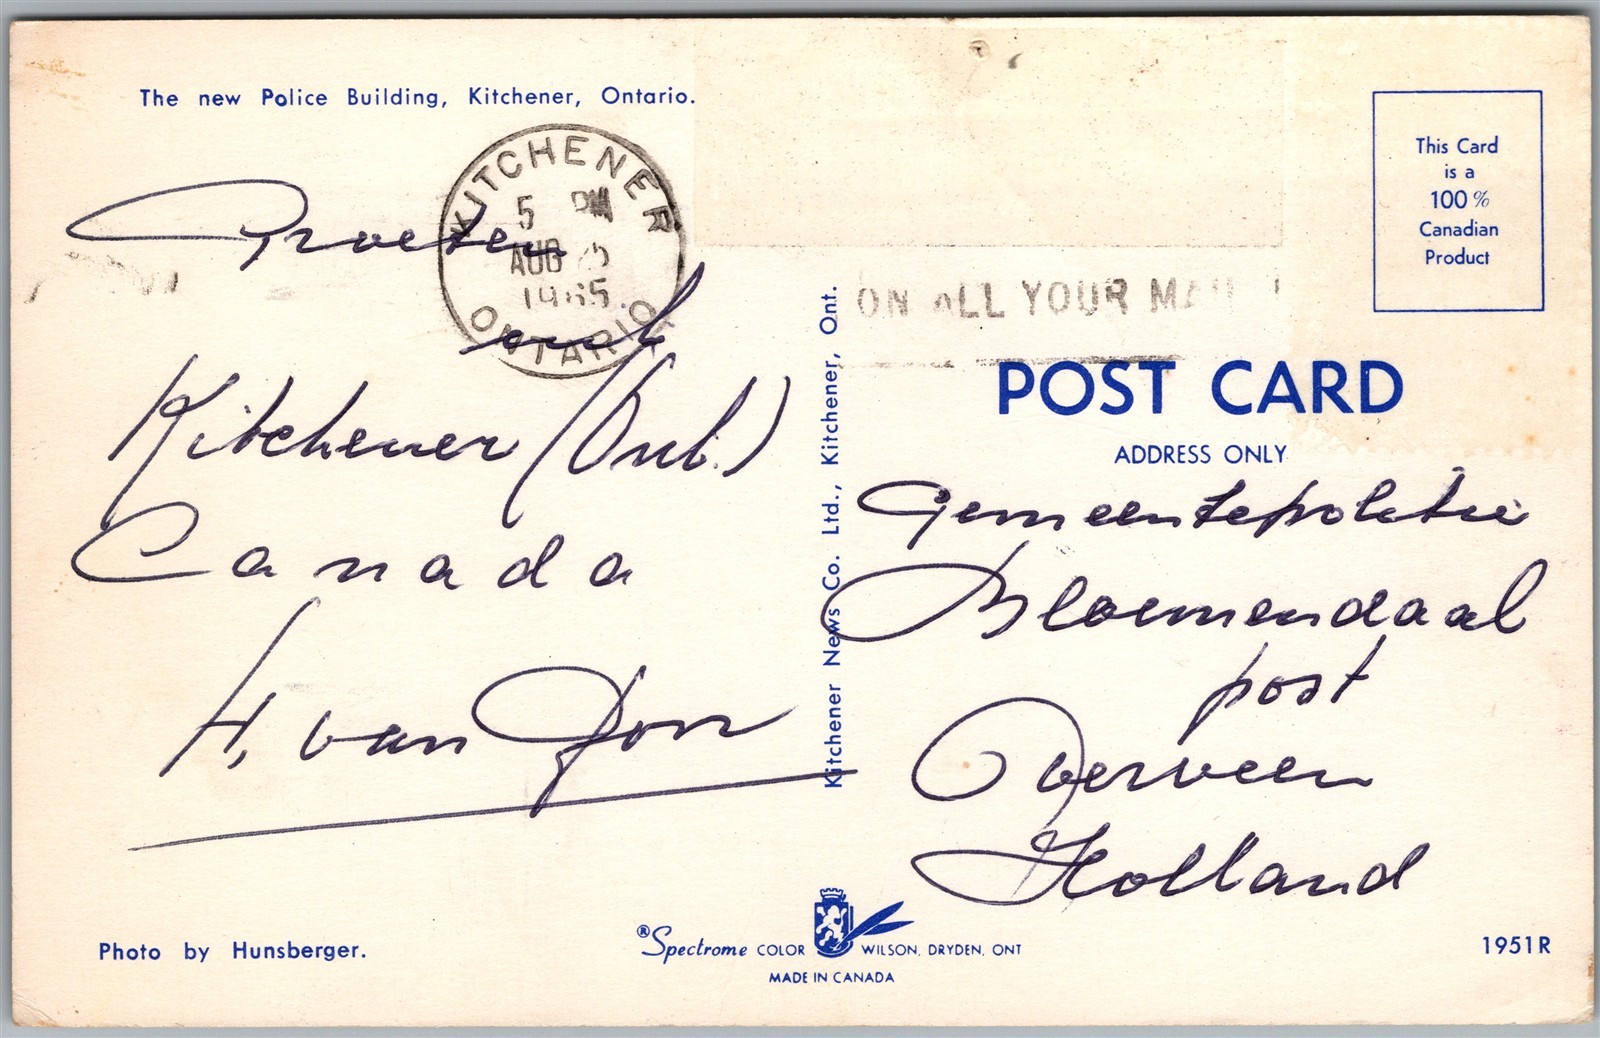 The new Police Building, Kitchener, Ontario.
KITCHENER
5 PM
AUG
1965
ONTARIO
Groeten
uit
Kitchener (Ont.)
Canada
H. van
Kitchener News Co. Ltd., Kitchener, Ont.
ON ALL YOUR MAIL
This Card
is a
100%
Canadian
Product
POST CARD
ADDRESS ONLY
Gemeentepolitie
Bloemendaal
post
Overveen
Holland
Photo by Hunsberger.
®Spectrome COLOR WILSON, DRYDEN, ONT
MADE IN CANADA
1951R